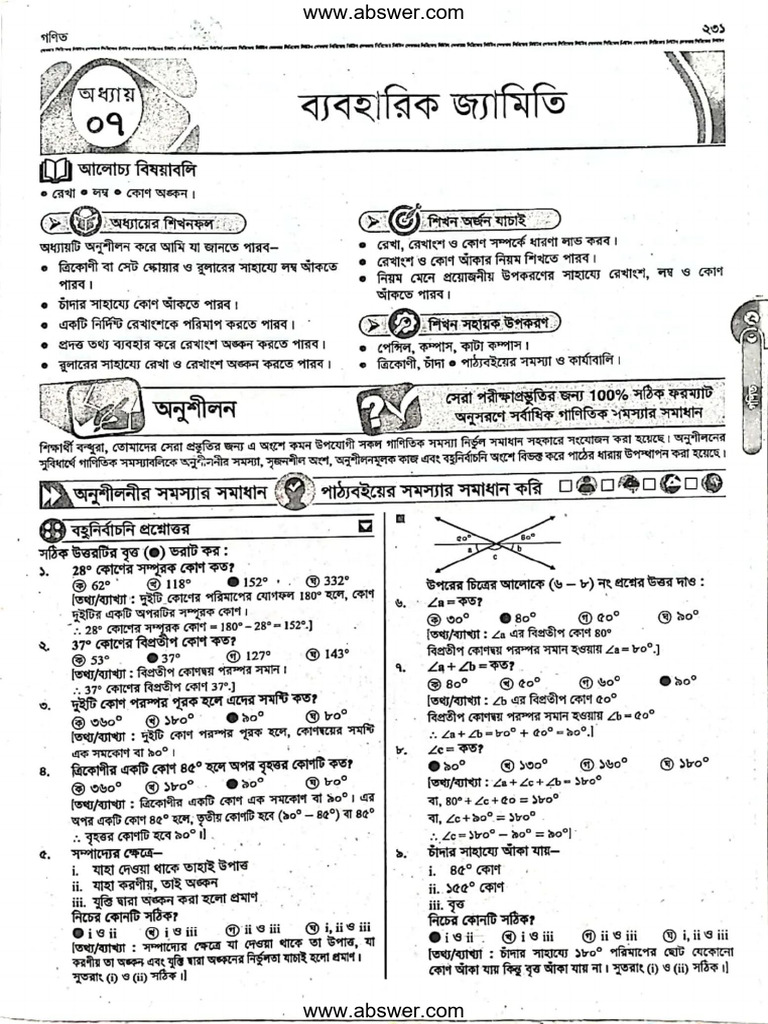 www.abswer.com
গণিত
২৩১
অধ্যায়
০৭
ব্যবহারিক জ্যামিতি
আলোচ্য বিষয়াবলি
• রেখা • লম্ব • কোণ অঙ্কন।
অধ্যায়ের শিখনফল
অধ্যায়টি অনুশীলন করে আমি যা জানতে পারব—
• ত্রিকোণী বা সেট স্কোয়ার ও রুলারের সাহায্যে লম্ব আঁকতে
পারব।
• চাঁদার সাহায্যে কোণ আঁকতে পারব।
• একটি নির্দিষ্ট রেখাংশকে পরিমাপ করতে পারব।
• প্রদত্ত তথ্য ব্যবহার করে রেখাংশ অঙ্কন করতে পারব।
• রুলারের সাহায্যে রেখা ও রেখাংশ অঙ্কন করতে পারব।
শিখন অর্জন যাচাই
• রেখা, রেখাংশ ও কোণ সম্পর্কে ধারণা লাভ করব।
• রেখাংশ ও কোণ আঁকার নিয়ম শিখতে পারব।
• নিয়ম মেনে প্রয়োজনীয় উপকরণের সাহায্যে রেখাংশ, লম্ব ও কোণ
আঁকতে পারব।
শিখন সহায়ক উপকরণ
• পেন্সিল, কম্পাস, কাটা কম্পাস।
• ত্রিকোণী, চাঁদা • পাঠ্যবইয়ের সমস্যা ও কার্যাবালি।
অনুশীলন
সেরা পরীক্ষাপ্রস্তুতির জন্য 100% সঠিক ফরম্যাট
অনুসরণে সর্বাধিক গাণিতিক সমস্যার সমাধান
শিক্ষার্থী বন্ধুরা, তোমাদের সেরা প্রস্তুতির জন্য এ অংশে কমন উপযোগী সকল গাণিতিক সমস্যা নির্ভুল সমাধান সহকারে সংযোজন করা হয়েছে। অনুশীলনের
সুবিধার্থে গাণিতিক সমস্যাবলিকে অনুশীলনীর সমস্যা, সৃজনশীল অংশ, অনুশীলনমূলক কাজ এবং বহুনির্বাচনি অংশে বিভক্ত করে পাঠের ধারায় উপস্থাপন করা হয়েছে।
অনুশীলনীর সমস্যার সমাধান
পাঠ্যবইয়ের সমস্যার সমাধান করি
বহুনির্বাচনি প্রশ্নোত্তর
সঠিক উত্তরটির বৃত্ত (●) ভরাট কর :
১. 28° কোণের সম্পূরক কোণ কত?
ক 62° খ 118° ● 152° ঘ 332°
[তথ্য/ব্যাখ্যা : দুইটি কোণের পরিমাপের যোগফল 180° হলে, কোণ
দুইটির একটি অপরটির সম্পূরক কোণ।
∴ 28° কোণের সম্পূরক কোণ = 180° – 28° = 152°।]
২. 37° কোণের বিপ্রতীপ কোণ কত?
ক 53° ● 37° গ 127° ঘ 143°
[তথ্য/ব্যাখ্যা : বিপ্রতীপ কোণদ্বয় পরস্পর সমান।
∴ 37° কোণের বিপ্রতীপ কোণ 37°।]
৩. দুইটি কোণ পরস্পর পূরক হলে এদের সমষ্টি কত?
ক ৩৬০° খ ১৮০° ● ৯০° ঘ ৮০°
[তথ্য/ব্যাখ্যা : দুইটি কোণ পরস্পর পূরক হলে, কোণদ্বয়ের সমষ্টি
এক সমকোণ বা ৯০°।
৪. ত্রিকোণীর একটি কোণ ৪৫° হলে অপর বৃহত্তর কোণটি কত?
ক ৩৬০° খ ১৮০° ● ৯০° ঘ ৮০°
[তথ্য/ব্যাখ্যা : ত্রিকোণীর একটি কোণ এক সমকোণ বা ৯০°। এর
অপর একটি কোণ ৪৫° হলে, তৃতীয় কোণটি হবে (৯০° – ৪৫°) বা ৪৫°
∴ বৃহত্তর কোণটি হবে ৯০°।]
৫. সম্পাদ্যের ক্ষেত্রে—
i. যাহা দেওয়া থাকে তাহাই উপাত্ত
ii. যাহা করণীয়, তাই অঙ্কন
iii. যুক্তি দ্বারা অঙ্কন করা হলো প্রমাণ
নিচের কোনটি সঠিক?
● i ও ii খ i ও iii গ ii ও iii ঘ i, ii ও iii
[তথ্য/ব্যাখ্যা : সম্পাদ্যের ক্ষেত্রে যা দেওয়া থাকে তা উপাত্ত, যা
করণীয় তা অঙ্কন এবং যুক্তি দ্বারা অঙ্কনের নির্ভুলতা যাচাই হলো প্রমাণ।
সুতরাং (i) ও (ii) সঠিক।]
৫০° ৪০°
a b
c
উপরের চিত্রের আলোকে (৬ – ৮) নং প্রশ্নের উত্তর দাও :
৬. ∠a = কত?
ক ৩০° ● ৪০° গ ৫০° ঘ ৯০°
[তথ্য/ব্যাখ্যা : ∠a এর বিপ্রতীপ কোণ 40°
বিপ্রতীপ কোণদ্বয় পরস্পর সমান হওয়ায় ∠a = ৪০°।]
৭. ∠a + ∠b = কত?
ক ৪০° খ ৫০° গ ৬০° ● ৯০°
[তথ্য/ব্যাখ্যা : ∠b এর বিপ্রতীপ কোণ ৫০°
বিপ্রতীপ কোণদ্বয় পরস্পর সমান হওয়ায় ∠b = ৫০°
∴ ∠a + ∠b = ৪০° + ৫০° = ৯০°।]
৮. ∠c = কত?
● ৯০° খ ১৩০° গ ১৬০° ঘ ১৮০°
[তথ্য/ব্যাখ্যা : ∠a + ∠c + ∠b = ১৮০
বা, 40° + ∠c + ৫০ = ১৮০°
বা, ∠c + ৯০° = ১৮০°
∴ ∠c = ১৮০° – ৯০° = ৯০°]
৯. চাঁদার সাহায্যে আঁকা যায়—
i. ৪৫° কোণ
ii. ১৫৫° কোণ
iii. বৃত্ত
নিচের কোনটি সঠিক?
● i ও ii খ i ও iii গ ii ও iii ঘ i, ii ও iii
[তথ্য/ব্যাখ্যা : চাঁদার সাহায্যে ১৮০° পরিমাপের ছোট যেকোনো
কোণ আঁকা যায় কিন্তু বৃত্ত আঁকা যায় না। সুতরাং (i) ও (ii) সঠিক।]
www.abswer.com